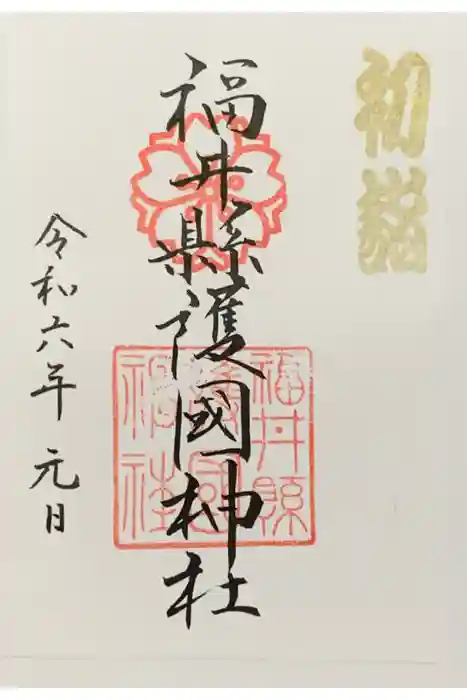 初詣
福井縣護國神社
福井縣
護國
神社
令和六年 元日